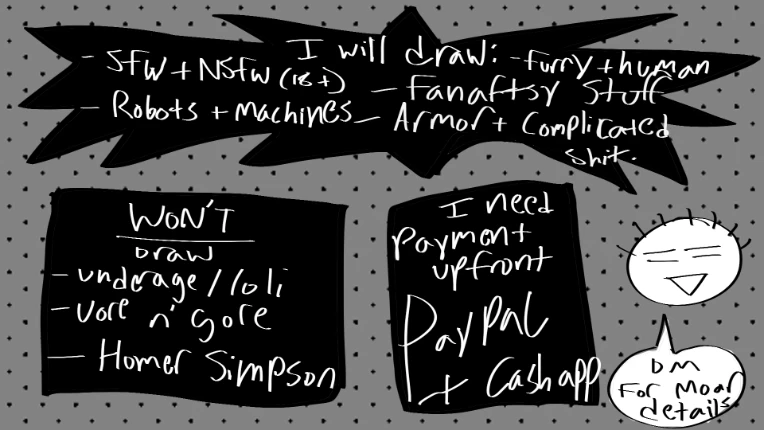 I will draw:
- SFW + NSFW (18+)
- Furry + human
- Robots + machines
- Fanaftsy Stuff
- Armor + Complicated
shit.
WON'T
Draw
- underage / loli
- Vore n' gore
- Homer Simpson
I need
Payment
upfront
PayPal
+ Cash app
DM
For Moar
details